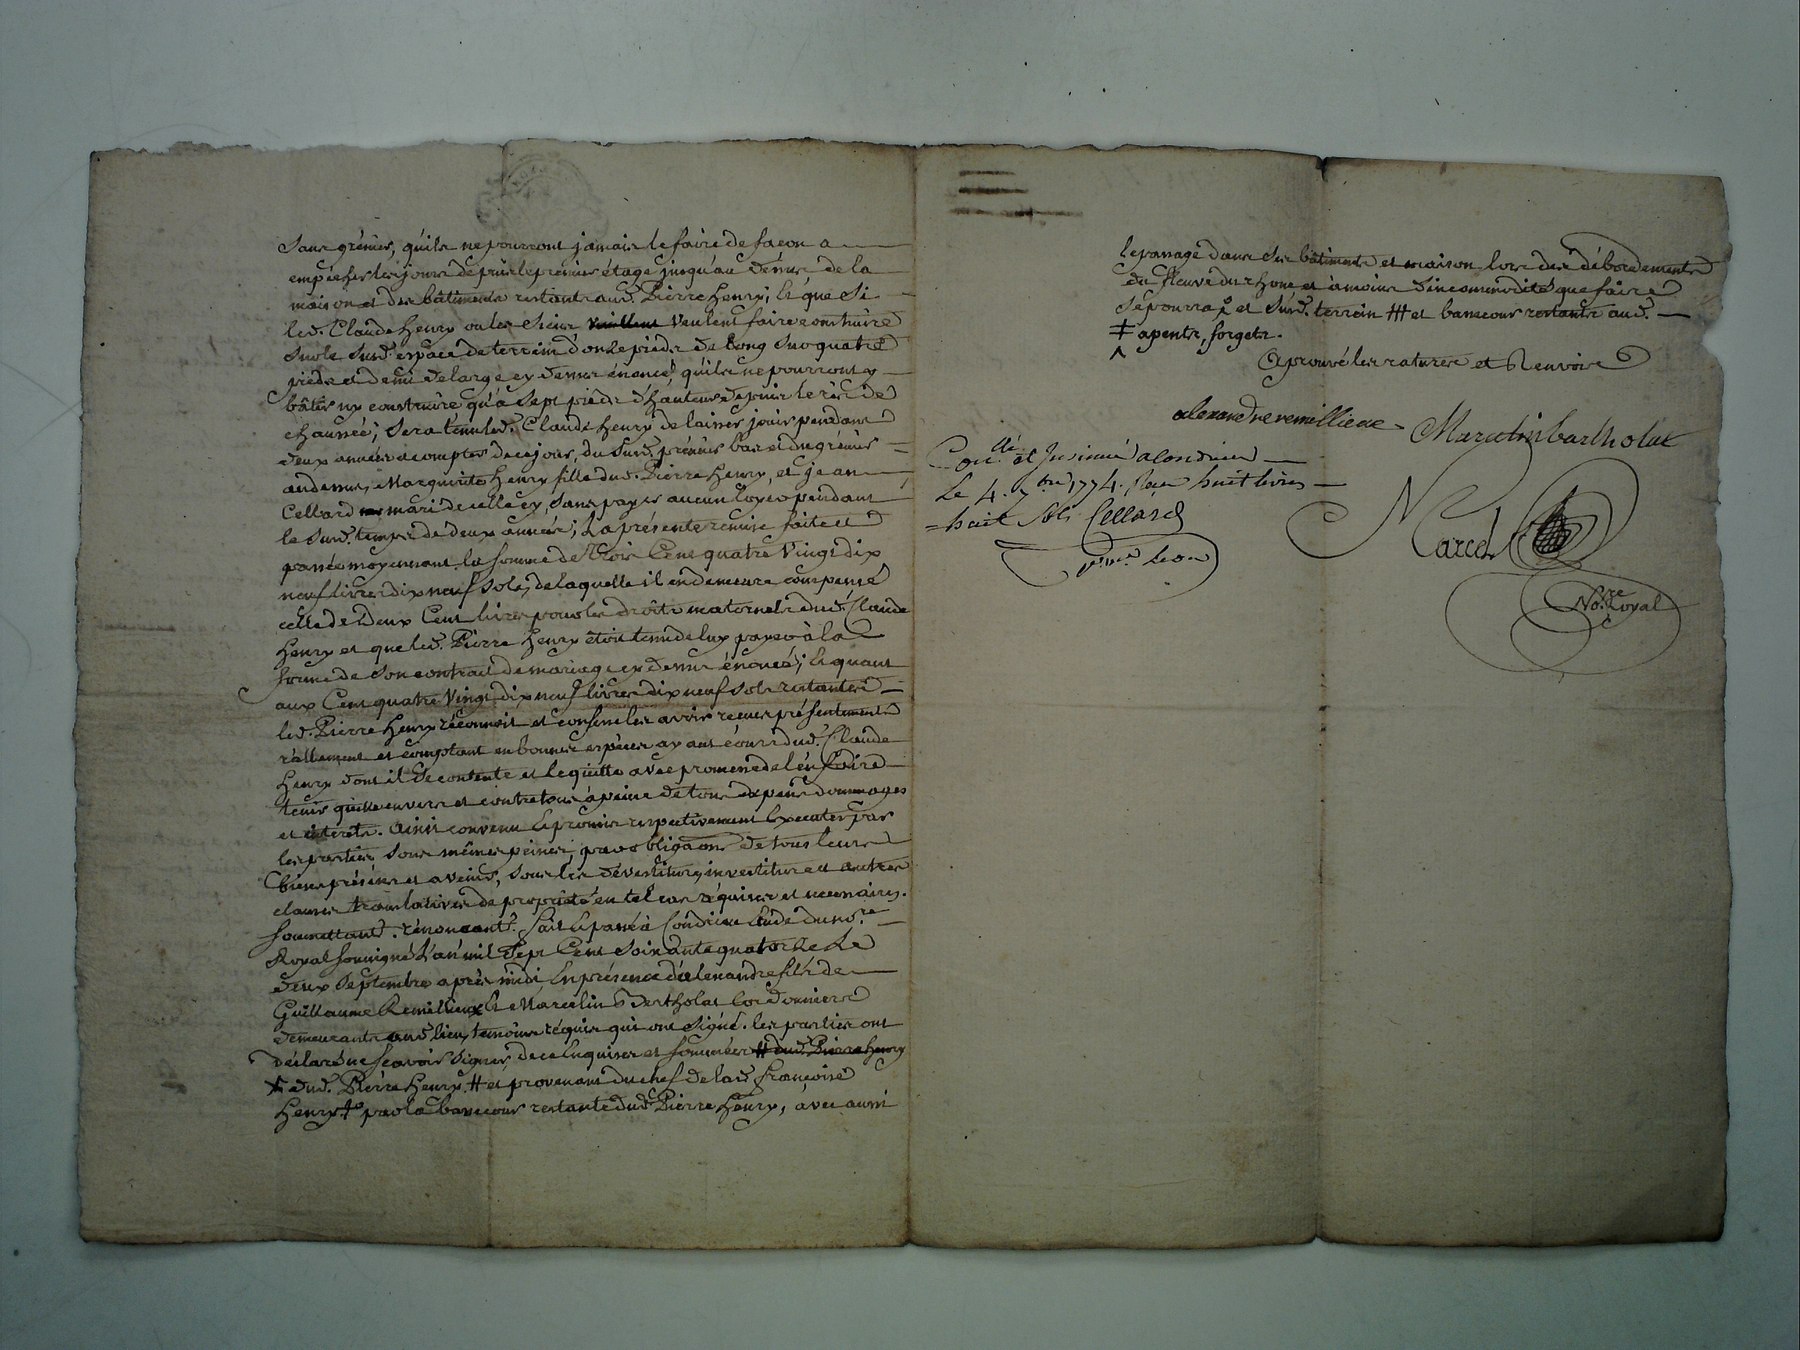 Sans grénier, qu'ils ne pourront jamais le faire de façon a
empécher les jours depuis le premier étage jusqu'au dessus de la
maison et des bâtiments restants aud. Pierre Henry; Et que si
led. Claude Henry ou les siens veuillent veulent faire construire
sur le susd. espace de terrein d'onze pieds de long sur quatre
pieds et demi de large cy dessus énoncé, qu'ils ne pourront y
bâtir ny construire qu'a sept pieds d'hauteur depuis le réz de
chaussée; sera tenu led. Claude Henry de laisser jouir pendant
deux années a compter de ce jour, du susd. prémier bas et du grénier
au dessus, Marguerite Henry fille dud. Pierre Henry, et Jean
Cellard mari de celle cy, sans payer aucun loyer pendant
le susd. temps de deux années; La présente remise faite et
passée moyennant la somme de Trois Cent quatre Vingt dix
neuf livres dix neuf sols, de laquelle il en demeure compensé
celle de Deux Cent livres pour les droits maternels dud. Claude
Henry et que led. Pierre Henry étoit tenu de luy payer à la
forme de son contrat de mariage cy dessus énoncé; Et quant
aux Cent quatre Vingt dix neuf livres dix neuf sols restantes
led. Pierre Henry réconnoit et confesse les avoir recues présentement
réellement et comptant en bonnes espèces ayant cours dud. Claude
Henry dont il se contente et le quitte avec promesse de l'en faire
tenir quitte envers et contre tous à peine de tous dépens dommages
et intérêts. Ainsi convenu Et promis respectivement Executer par
les parties, sous mêmes peines, par obligaõns de tous leurs
biens présents et avenir, sous les dévestitures, investitures et autres
clauses translatives de proprieté en tel cas réquises et nécessaires.
soumettant. rénonceant. Fait Et passé à Condrieu Etude du no.re
Royal soussigné L'an mil Sept Cent Soixante quatorze Le
deux Septembre après midi, En présence d'alexandre fils de
Guillaume Remillieux Et Marcelin Bertholat Cordonniers
demeurants aud. lieu, temoins réquis qui ont signé. les parties ont
déclaré ne scavoir signer, de ce Enquises et sommées # dud. Pierre Henry
dud. Pierre Henry. # et provenant du chef de lad. françoise
Henry par la basse cour restante dud. Pierre Henry, avec aussi
le passage dans ses bâtiments et maison lors des débordements
du fleuve du rhone et à moins d'incommodités que faire
se pourra, et susd. terrein # et basse cour restante aud.
‡ apents, forgets.
Aprouvé les ratures et Renvois
alexandre remillieux
Marcelin bartholat
Con.llé et Insinué a Condrieu
Le 4. 7bre 1774. Reçu huit livres
huit sols Cellard
Marcel
No.re Royal